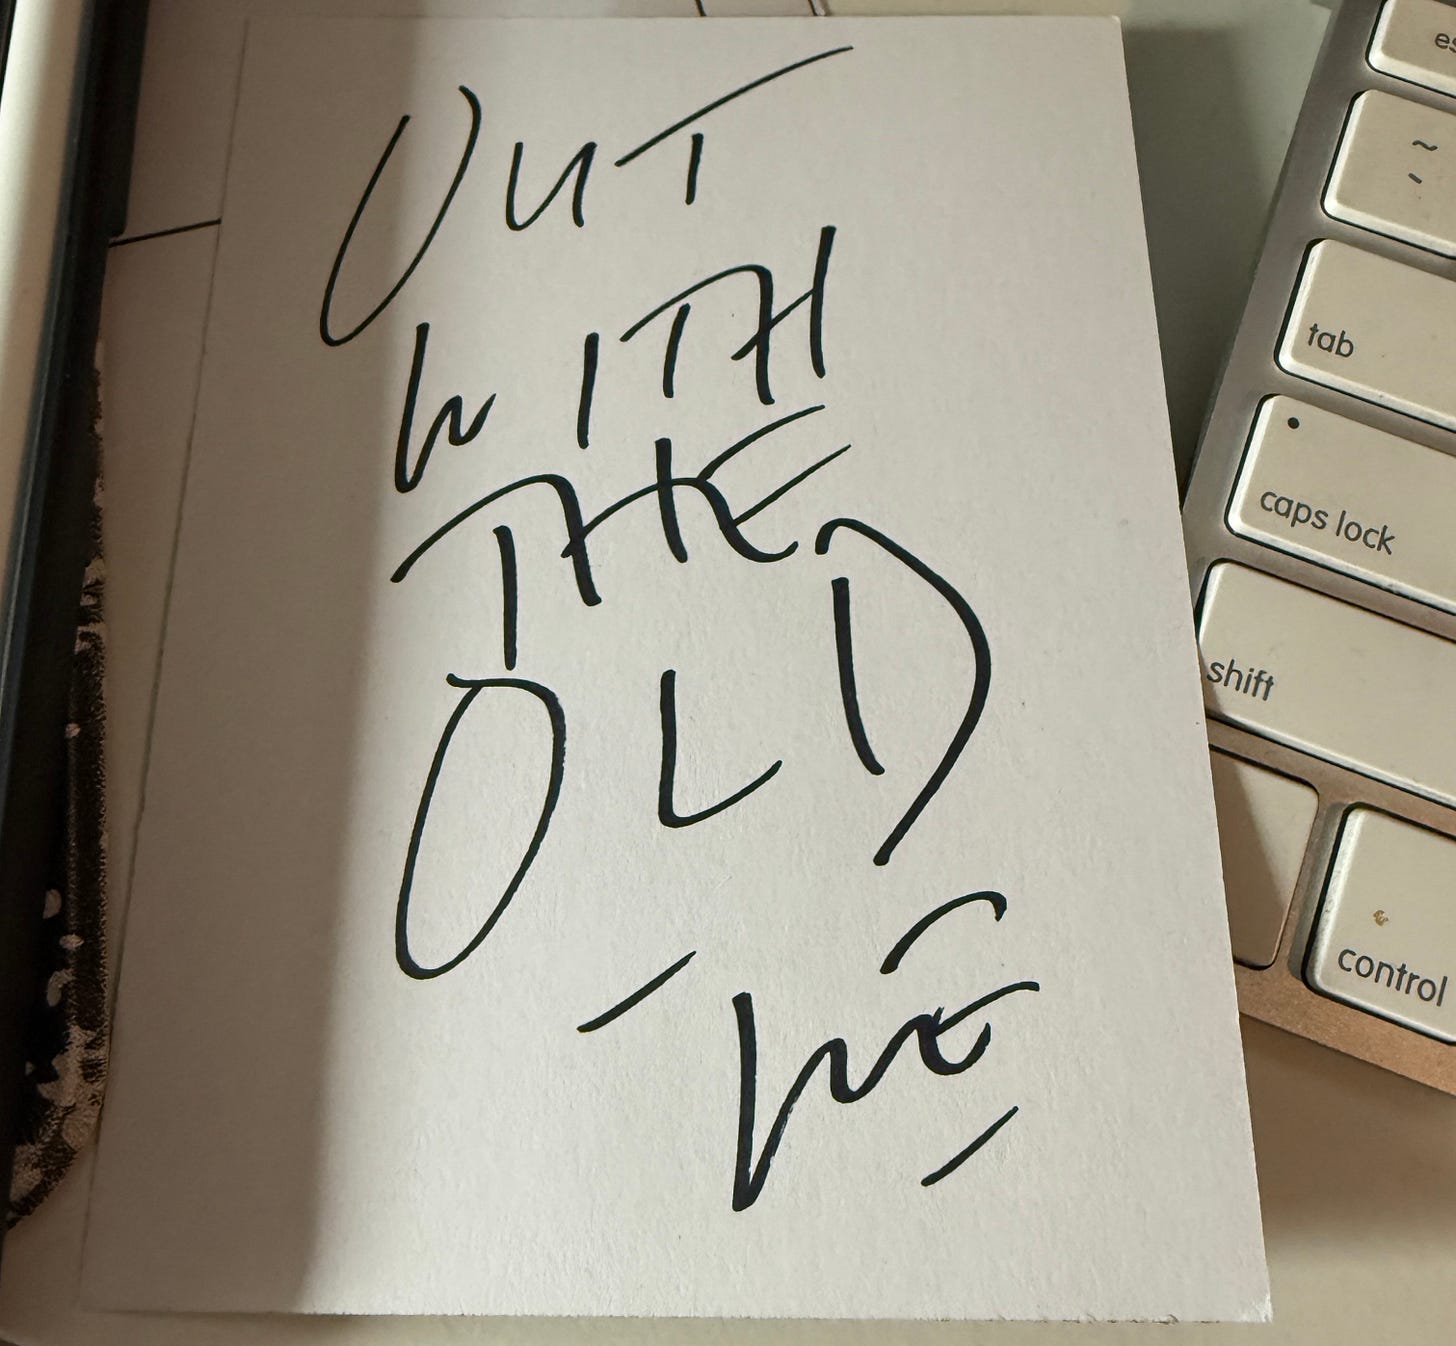 OUT
WITH
THE
OLD
- WE
~
`
tab
caps lock
shift
control